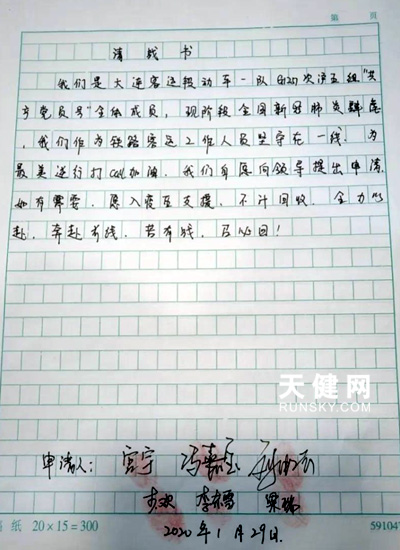 第 页
请战书
我们是大连客运段动车一队G217次冯五组"共
产党员号"全体成员，现阶段全国新冠肺炎肆虐
，我们作为铁路客运工作人员坚守在一线，为
最美逆行打call加油，我们自愿向领导提出申请，
如有需要，愿入疫区支援，不计回收，全力以
赴，奔赴前线，若有战，召必回！
天健网
RUNSKY.COM
申请人：宫宁 冯嘉
李京雪 梁瑞
2020年1月29日.
纸 20×15=300
591047